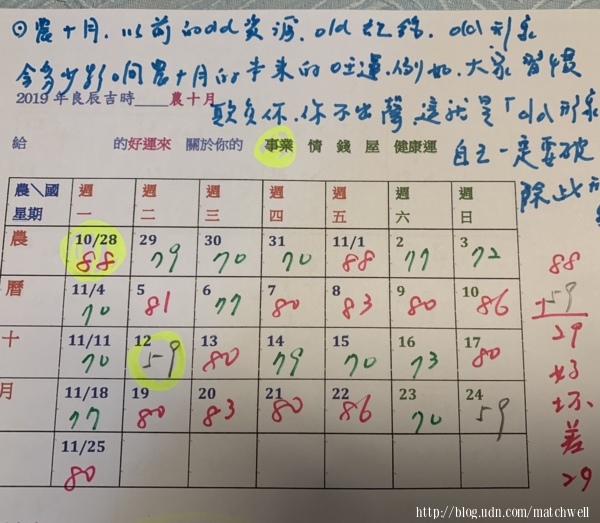 ⊙農十月，以前的old資源，old紀錄，old形象
會多少影响農十月的本來的旺運，例如，大家習慣
2019 年良辰吉時____農十月
欺負你，你不出聲，這就是「old形象
給 的好運來 關於你的 事業 情 錢 屋 健康運
自己一定要破
除此形
農\國 週 週 週 週 週 週 週
星期 一 二 三 四 五 六 日
農 10/28 29 30 31 11/1 2 3
88 79 70 70 88 77 72
曆 11/4 5 6 7 8 9 10
70 81 77 80 83 80 86
十 11/11 12 13 14 15 16 17
70 59 80 79 70 73 80
月 11/18 19 20 21 22 23 24
77 80 83 80 86 70 59
11/25
80
88
59
29
好
坏
差
29
http://blog.udn.com/matchwell